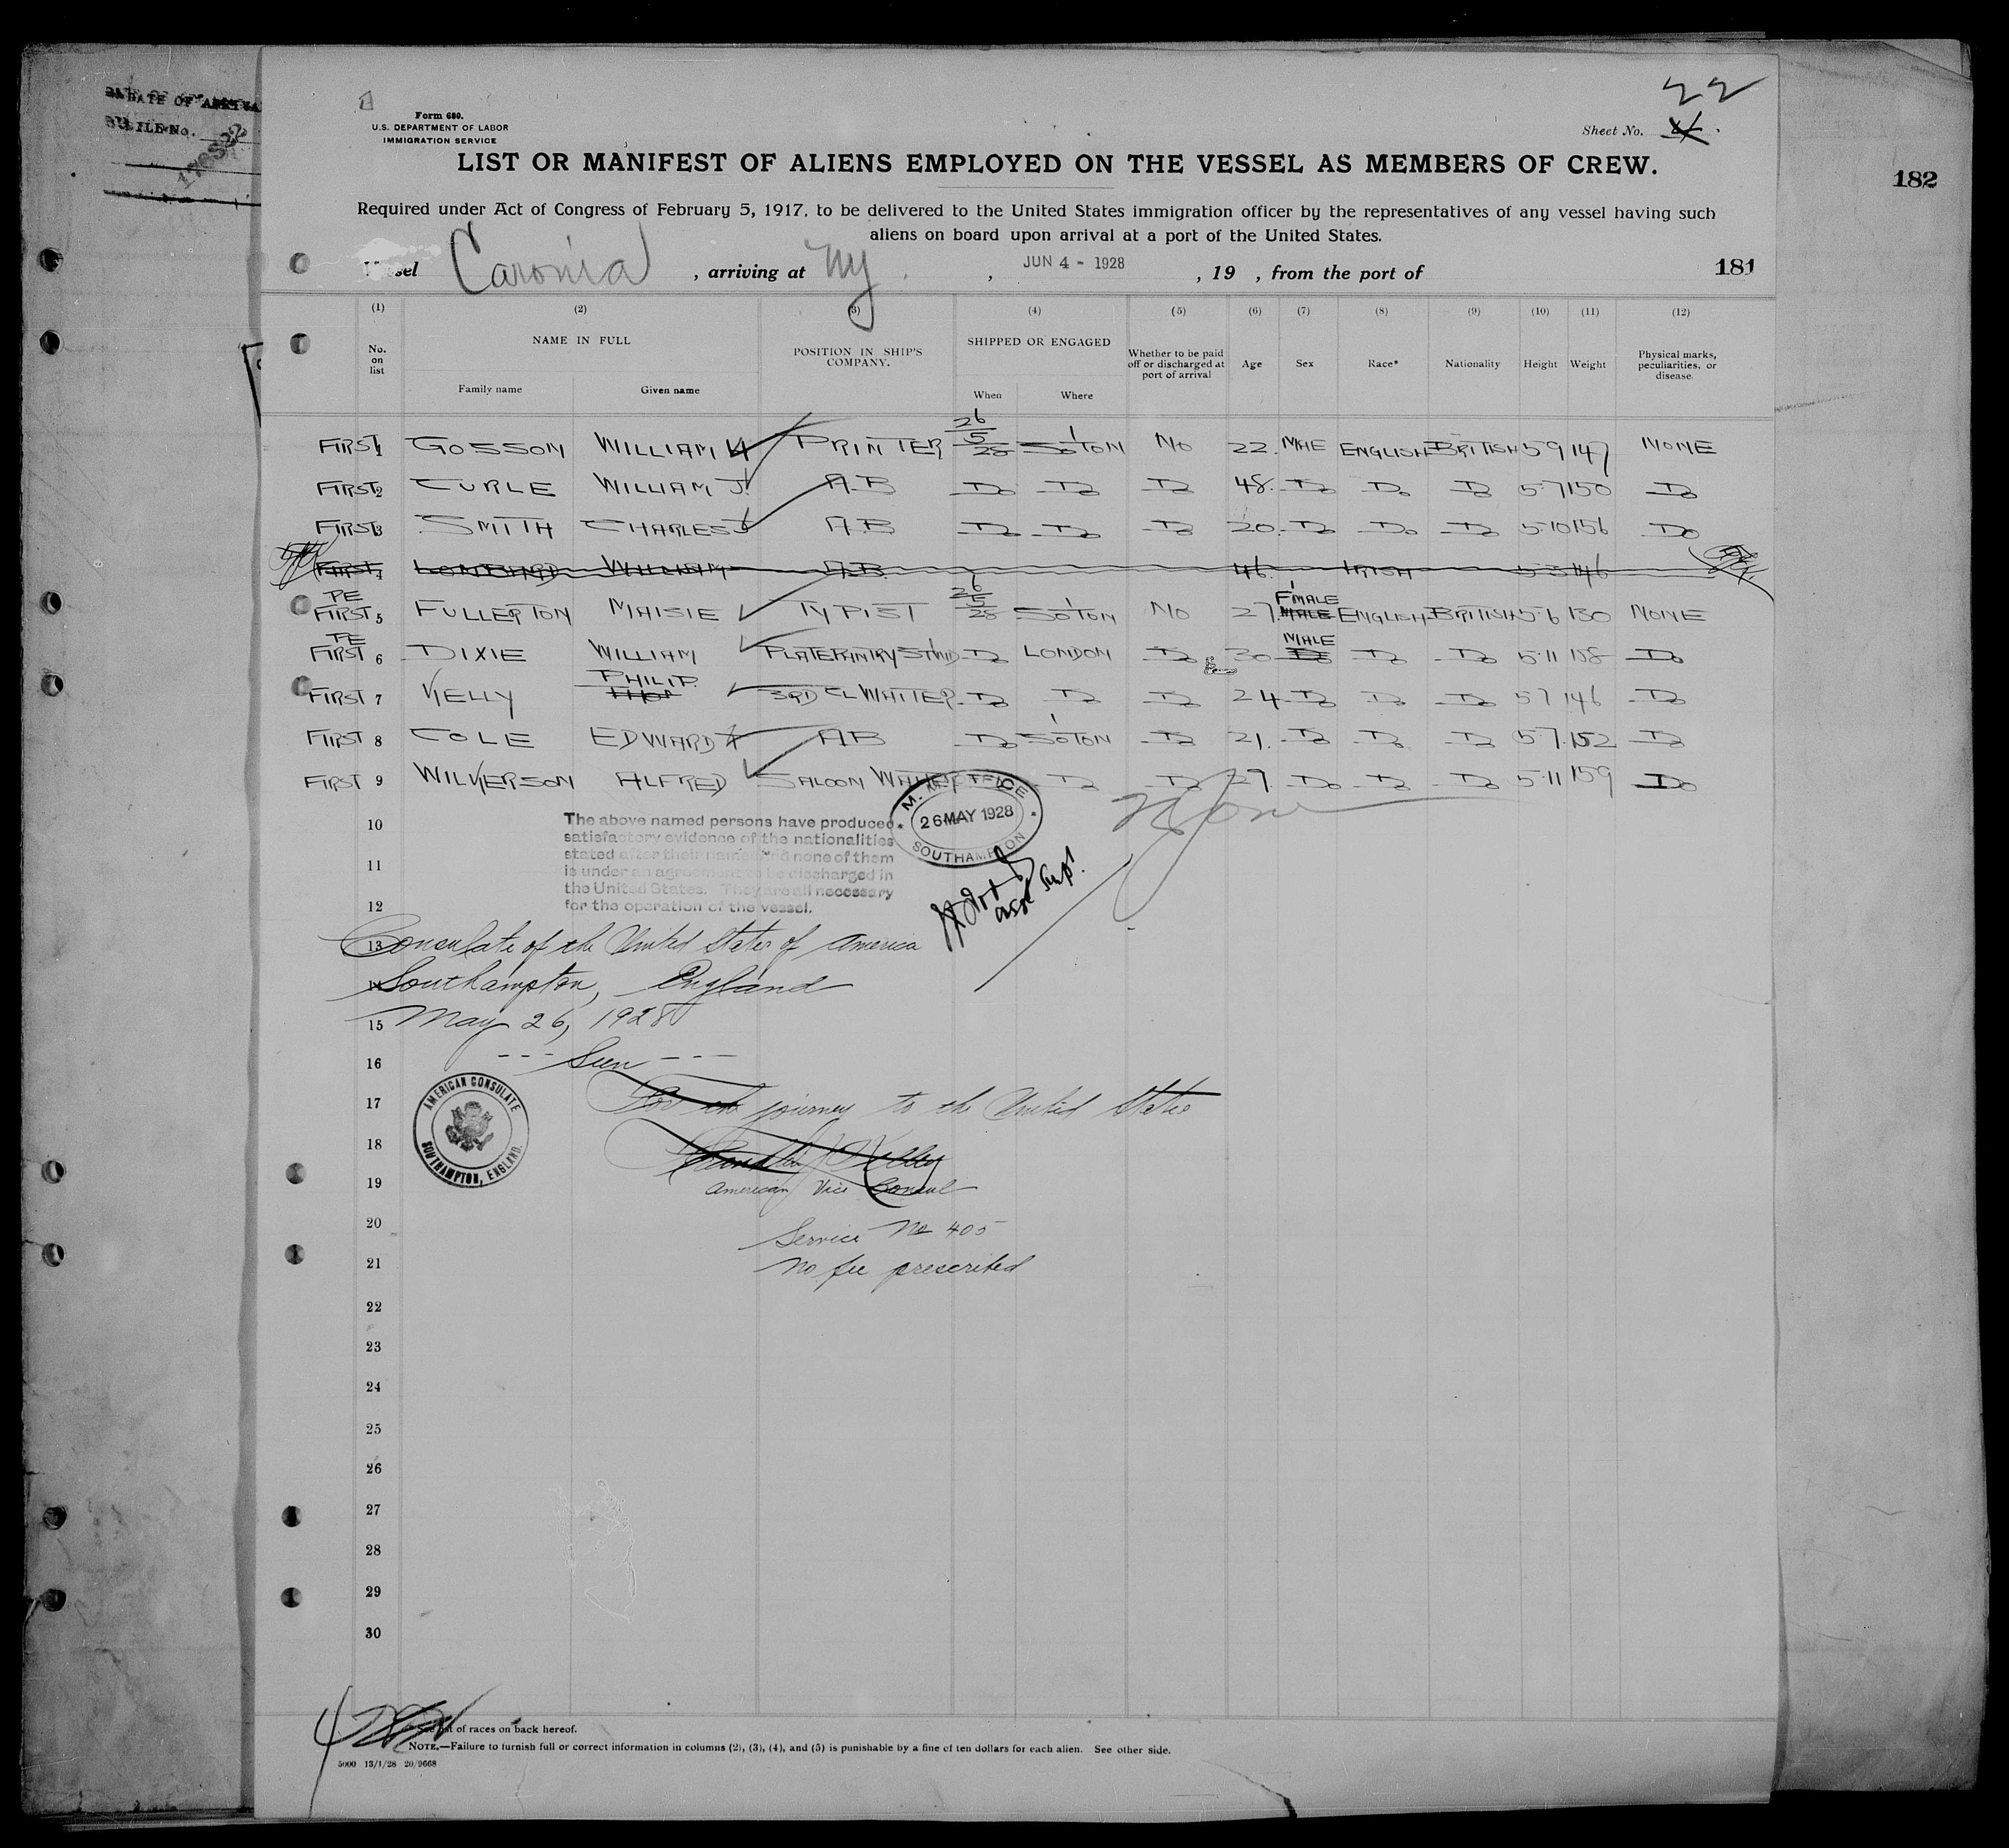 DATE OF ARRIVA
FILE No.
22
Form 680.
U.S. DEPARTMENT OF LABOR
IMMIGRATION SERVICE
Sheet No. 4.
LIST OR MANIFEST OF ALIENS EMPLOYED ON THE VESSEL AS MEMBERS OF CREW.
182
Required under Act of Congress of February 5, 1917, to be delivered to the United States immigration officer by the representatives of any vessel having such
aliens on board upon arrival at a port of the United States.
Vessel Caronia, arriving at NY, JUN 4 - 1928, 19 , from the port of 181
(1) (2) (3) (4) (5) (6) (7) (8) (9) (10) (11) (12)
No. on list NAME IN FULL POSITION IN SHIP'S COMPANY. SHIPPED OR ENGAGED Whether to be paid off or discharged at port of arrival Age Sex Race* Nationality Height Weight Physical marks, peculiarities, or disease.
Family name Given name When Where
FIRST 1 GOSSON WILLIAM H PRINTER 26/5/28 SO'TON NO 22. MALE ENGLISH BRITISH 5 9 147 NONE
FIRST 2 CURLE WILLIAM J. A.B Do Do Do 48. Do Do Do 5·7 150 Do
FIRST 3 SMITH CHARLES J A.B Do Do Do 20. Do Do Do 5·10 156 Do
FIRST 4 LOMBARD WILLIAM A.B. 46. IRISH 5 5 146
PE
FIRST 5 FULLERTON MAISIE TYPIST 26/5/28 SO'TON NO 27 FMALE MALE ENGLISH BRITISH 5·6 130 NONE
PE
FIRST 6 DIXIE WILLIAM PLATEPANTRY STWD Do LONDON Do 30 MALE Do Do Do 5·11 158 Do
FIRST 7 KELLY PHILIP. THOS 3RD CL WAITER Do Do Do 24 Do Do Do 5 7 146 Do
FIRST 8 COLE EDWARD A AB Do SO'TON Do 21. Do Do Do 5·7 152 Do
FIRST 9 WILKERSON ALFRED SALOON WAITER Do Do 27 Do Do Do 5·11 159 Do
M. M. OFFICE
26 MAY 1928
SOUTHAMPTON
10
The above named persons have produced
satisfactory evidence of the nationalities
stated after their names and none of them
11
is under an agreement to be discharged in
the United States. They are all necessary
12
for the operation of the vessel.
asst Supt.
13 Consulate of the United States of America
14 Southampton, England
15 May 26, 1928
16 --- Seen ---
AMERICAN CONSULATE
SOUTHAMPTON, ENGLAND.
17 For the journey to the United States
18
19 American Vice Consul
20 Service No 405
21 No fee prescribed
22
23
24
25
26
27
28
29
30
* See list of races on back hereof.
NOTE.—Failure to furnish full or correct information in columns (2), (3), (4), and (5) is punishable by a fine of ten dollars for each alien. See other side.
5000 13/1/28 20/9668